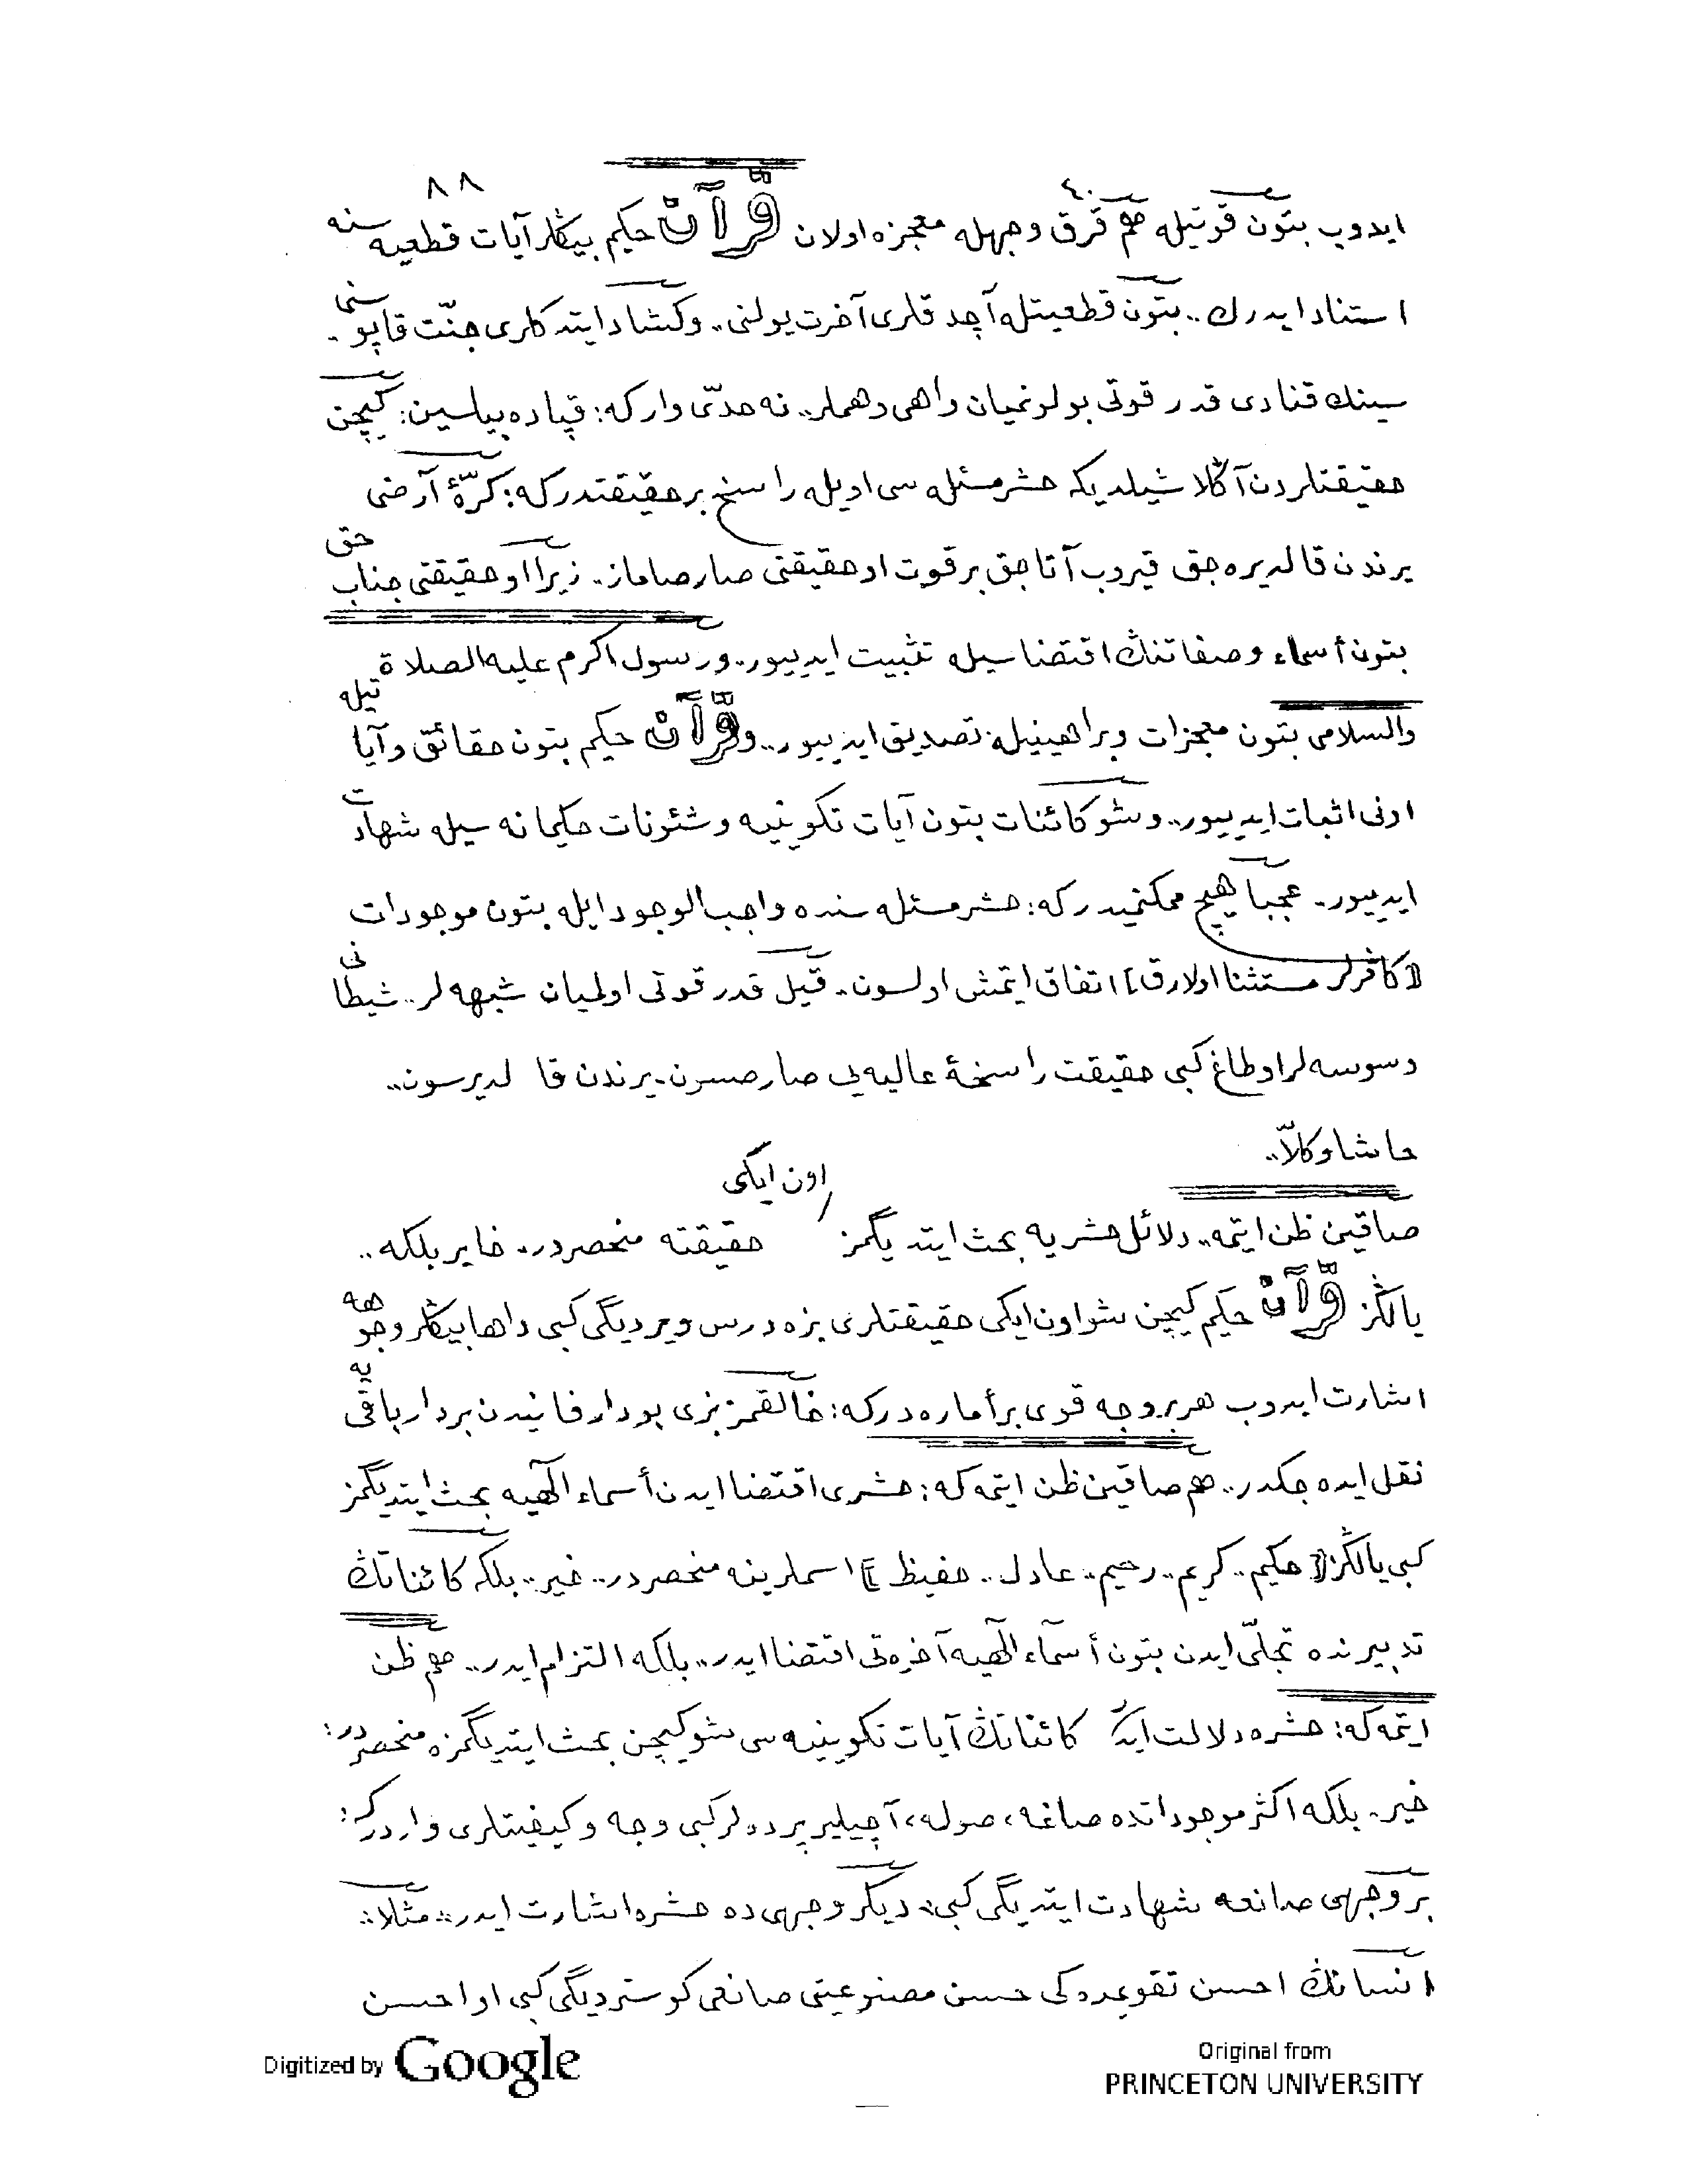 ٨٨
ايدوب بتون قوتيله هم قرق ٤٠ وجهله معجزه اولان قرآن حكيم بيڭلر آيات قطعيه سنه
استناد ايدرك.. بتون قطعيتله آچدقلرى آخرت يولنى.. وكشاد ايتدكلرى جنّت قاپوسنى.
سينك قنادى قدر قوتى بولونميان واهى وهملر.. نه حدّى وار كه: قپاده بيلسين: كيچن
حقيقتلردن آڭلاشيلديكه حشر مسئله سى اويله راسخ بر حقيقتدر كه: كرّۀ أرضى
يرندن قالديره جق قيروب آتاجق بر قوت او حقيقتى صارصاماز. زيرا او حقيقتى جناب حق
بتون أسماء وصفاتنڭ اقتضاسيله تثبيت ايدييور.. ورسول اكرم عليه الصلاة
والسلامى بتون معجزات وبراهينيله تصديق ايدييور.. وقرآن حكيم بتون حقائق وآياتيله
اونى اثبات ايدييور.. وشو كائنات بتون آيات تكوينيه وشئونات حكيمانه سيله شهادت
ايدييور. عجبا هيچ ممكنميدر كه: حشر مسئله سنده واجب الوجود ايله بتون موجودات
[كافرلر مستثنا اولارق] اتفاق ايتمش اولسون. قيل قدر قوتى اولميان شبهه لر.. شيطانى
وسوسه لر او طاغ كبى حقيقت راسخۀ عاليه يى صارصسون. يرندن قالديرسون..
حاشا وكلاّ..
صاقين ظن ايتمه.. دلائل حشريه بحث ايتديگمز اون ايكى حقيقته منحصردر. خاير بلكه..
يالڭز قرآن حكيم كيچن شو اون ايكى حقيقتلرى بزه درس ويرديگى كبى داها بيڭلر وجوهه
اشارت ايدوب هر بر وجه قوى بر أماره در كه: خالقمز بزى بو دار فانيدن بر دار باقى يه
نقل ايده جكدر.. هم صاقين ظن ايتمه كه: حشرى اقتضا ايدن أسماء الٓهيه بحث ايتديگمز
كبى يالڭز [حكيم.. كريم.. رحيم.. عادل.. حفيظ] اسملرينه منحصردر.. خير.. بلكه كائناتڭ
تدبيرنده تجلّى ايدن بتون أسماء الٓهيه آخرتى اقتضا ايدر.. بلكه التزام ايدر.. هم ظن
ايتمه كه: حشره دلالت ايدن كائناتڭ آيات تكوينيه سى شو كيچن بحث ايتديگمزه منحصردر:
خير. بلكه اكثر موجوداتده صاغه، صوله، آچيلير پرده لر كبى وجه وكيفيتلرى واردر كه:
بر وجهى صانعه شهادت ايتديگى كبى.. ديگر وجهى ده حشره اشارت ايدر.. مثلا:
انسانڭ احسن تقويمده كى حسن مصنوعيتى صانعى كوسترديگى كبى او احسن
Digitized by Google
Original from
PRINCETON UNIVERSITY